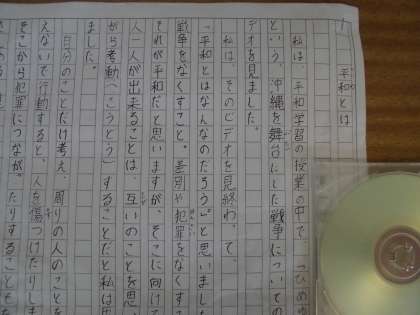 平和とは
私は、平和学習の授業の中で、「ひめゆ
という、沖縄を舞台にした戦争についての
デオを見ました。
私は、そのビデオを見終わって、
「平和とはなんなのだろう。」と思いました
戦争をなくすこと。差別や犯罪をなくすこ
それが平和だと思いますが、そこに向けて
人一人が出来ることは、互いのことを思い
がら考動(こうどう)することだと私は思
ました。
自分のことだけ考え、周りの人のことを
えないで行動すると、人を傷つけたりしま
そこから犯罪につながったりすることもあ